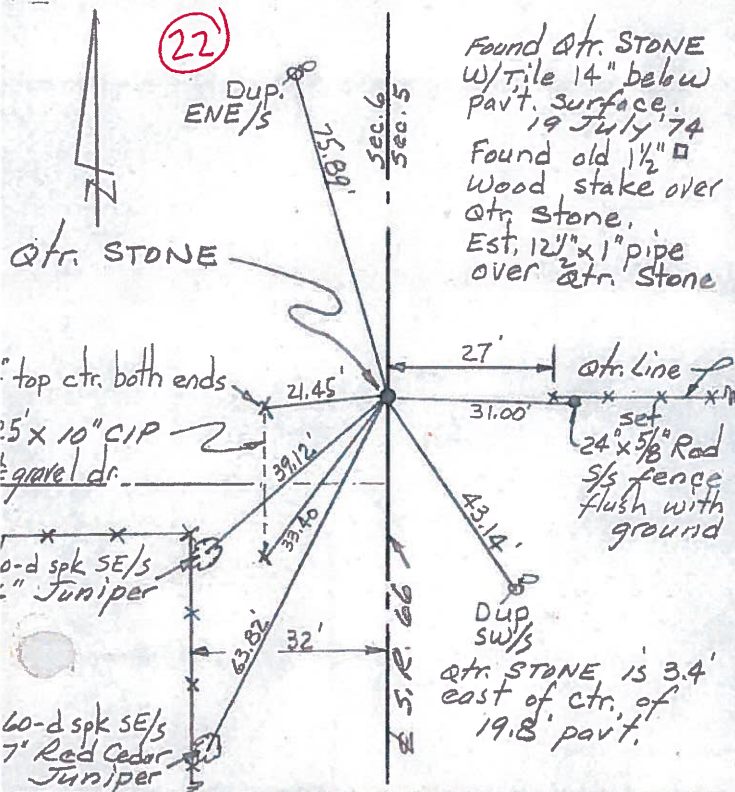 22
Dup.
ENE/s
75.89'
Sec. 6
Sec. 5
Found Qtr. STONE
W/Tile 14" below
pav't. surface.
19 July '74
Found old 1½" □
wood stake over
Qtr. Stone.
Est. 12½" x 1" pipe
over Qtr. Stone
N
Qtr. STONE
" top ctr. both ends
21.45'
27'
Qtr. Line
31.00'
set
24" x 5/8" Rod
S/s fence
flush with
ground
25' x 10" CIP
gravel dr.
39.12'
33.40
43.14'
0-d spk SE/s
" Juniper
63.82'
32'
℄ S.R. 66
Dup
SW/s
Qtr. STONE is 3.4'
east of ctr. of
19.8' pav't.
60-d spk SE/s
7" Red Cedar
Juniper